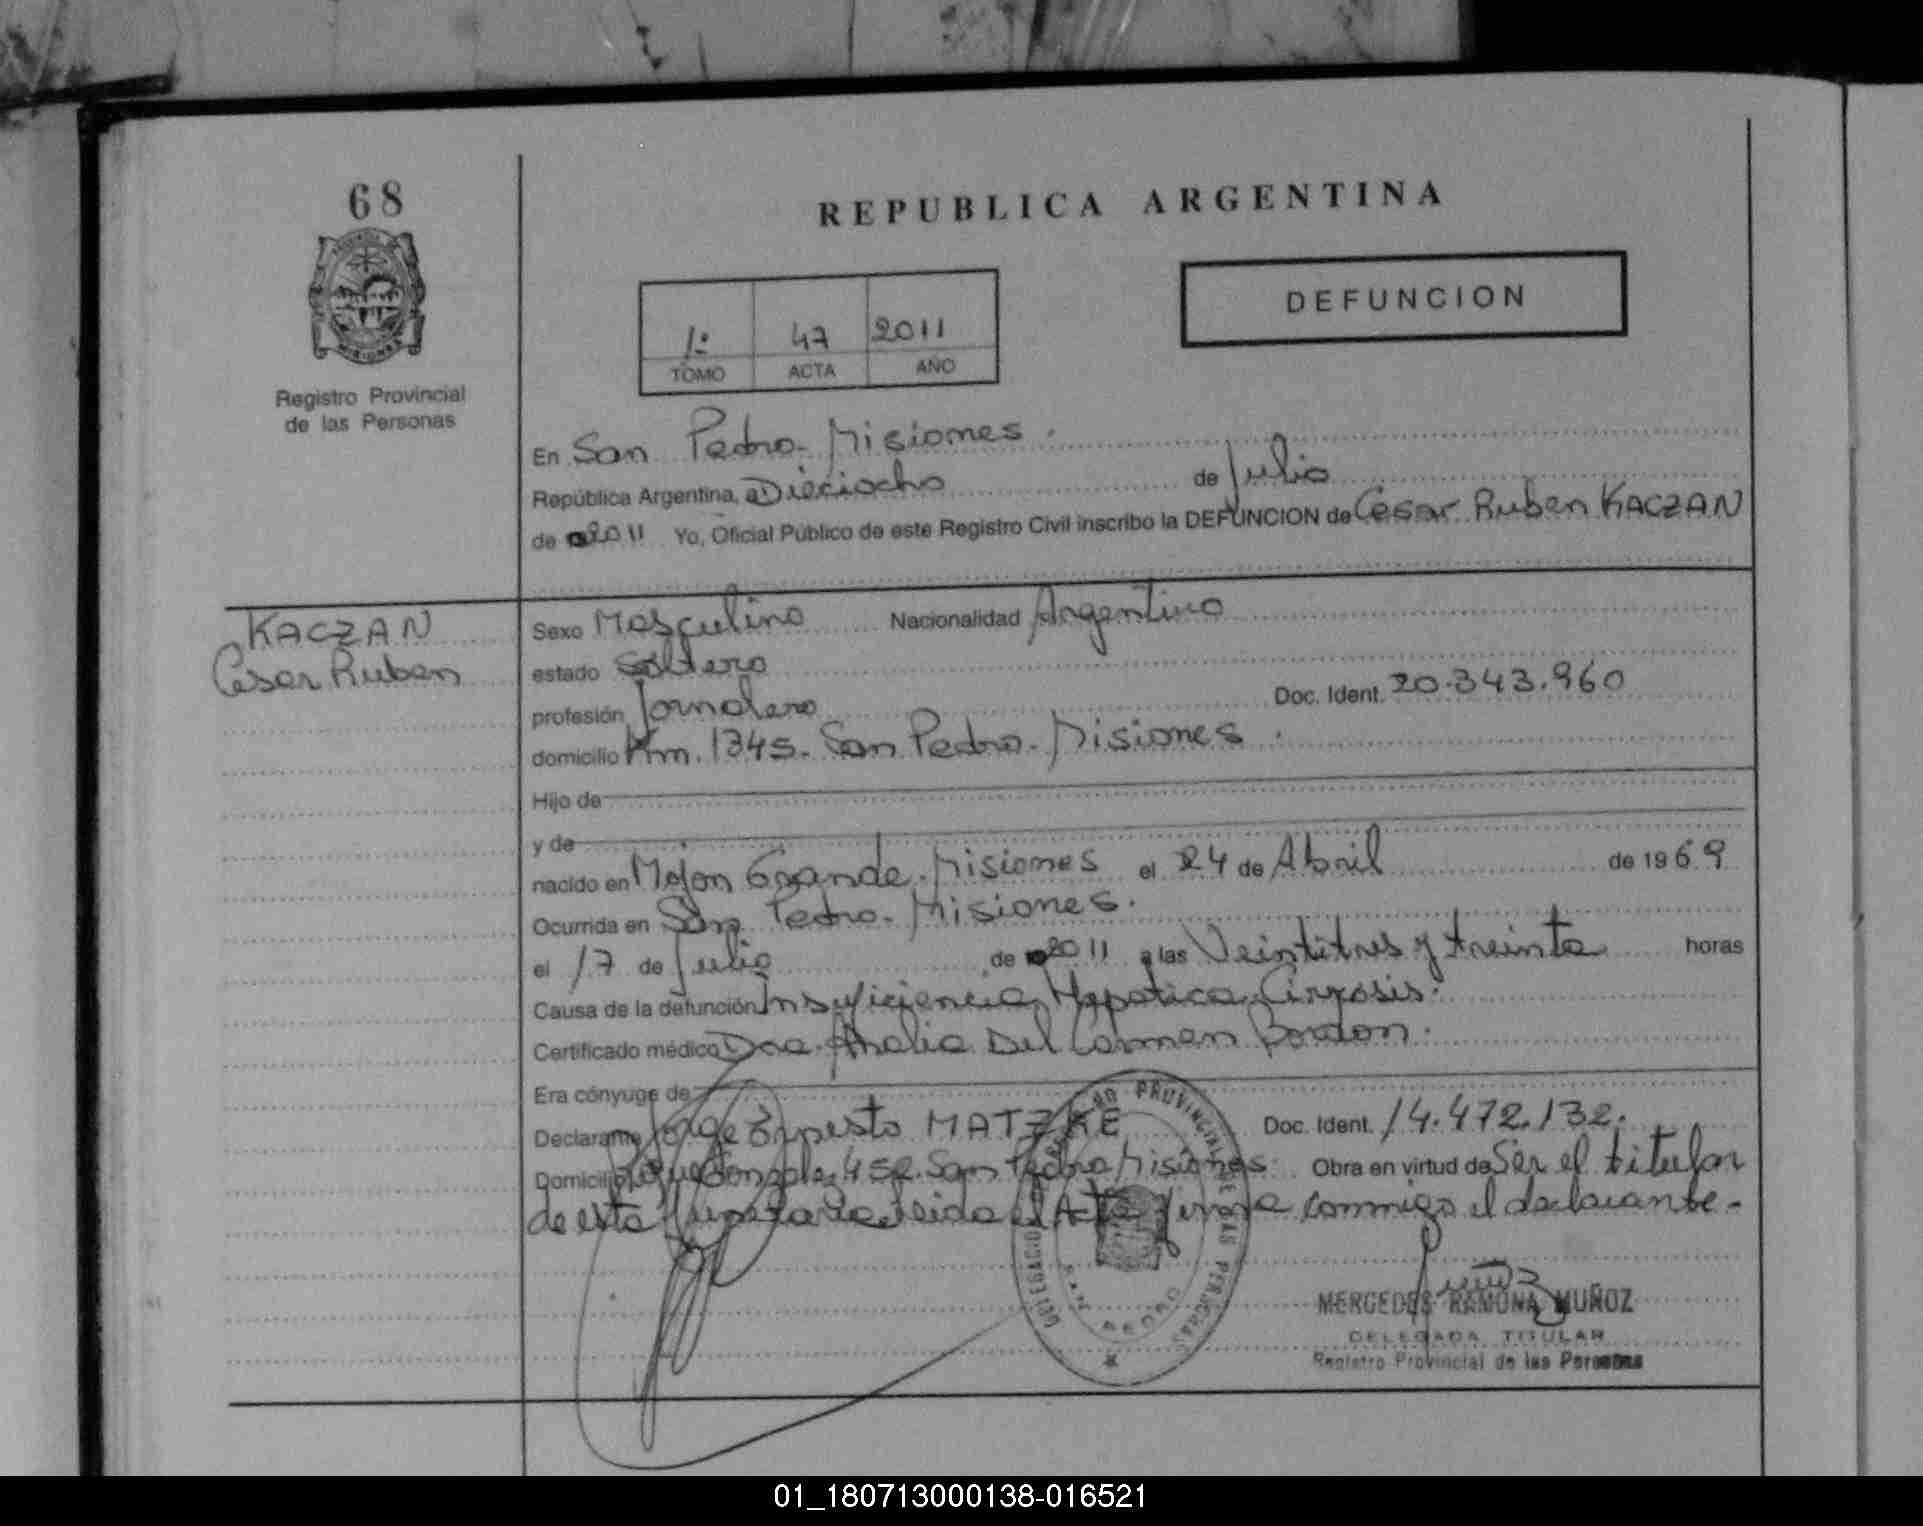 68
REPUBLICA ARGENTINA
DEFUNCION
1º 47 2011
TOMO ACTA AÑO
Registro Provincial
de las Personas
En San Pedro - Misiones.
República Argentina, a Dieciocho de Julio
de 2011 Yo, Oficial Público de este Registro Civil inscribo la DEFUNCION de Cesar Ruben KACZAN
KACZAN
Cesar Ruben
Sexo Masculino Nacionalidad Argentino
estado Soltero
profesión Jornalero Doc. Ident. 20.343.960
domicilio Km. 1345. San Pedro - Misiones.
Hijo de
y de
nacido en Mojon Grande - Misiones el 24 de Abril de 1969
Ocurrida en San Pedro - Misiones.
el 17 de Julio de 2011 a las Veintitres y treinta horas
Causa de la defunción Insuficiencia Hepatica, Cirrosis.
Certificado médico Dra. Analia Del Carmen Bordon.
Era cónyuge de
Declarante Jorge Ernesto MATZKE Doc. Ident. 14.472.132.
Domicilio Roque Gonzalez 452. San Pedro Misiones. Obra en virtud de Ser el titular
de esta funeraria Leida el Acta firma conmigo el declarante.-
DELEGACION REGISTRO PROVINCIAL DE LAS PERSONAS
SAN PEDRO
MERCEDES RAMONA MUÑOZ
DELEGADA TITULAR
Registro Provincial de las Personas
01_180713000138-016521